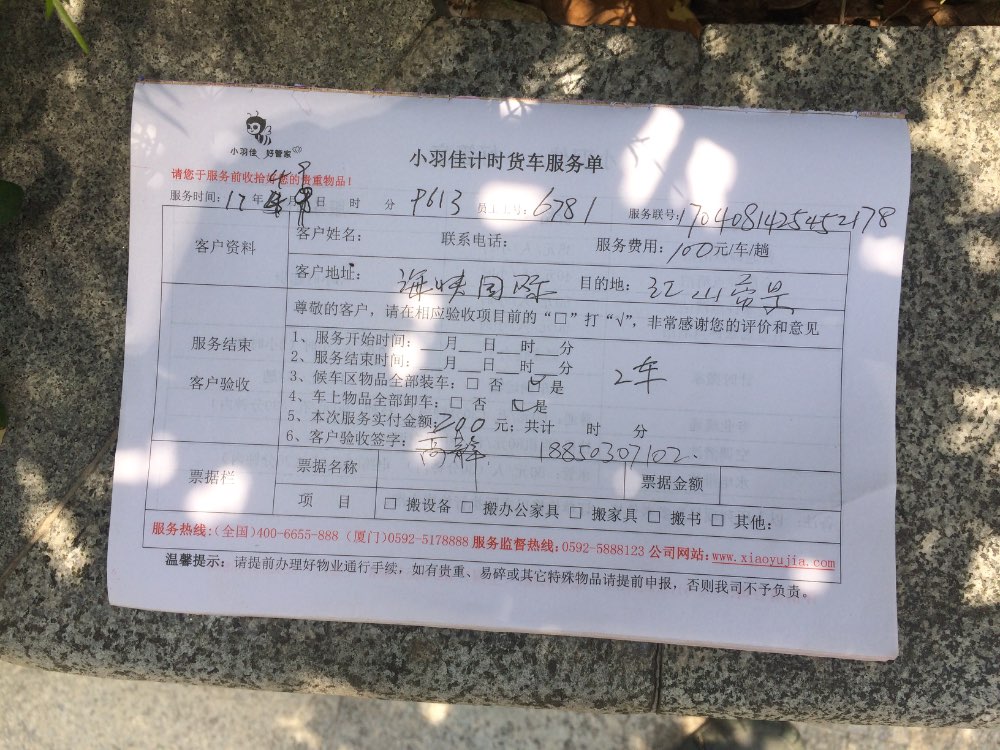 小羽佳 好管家
小羽佳计时货车服务单
请您于服务前收拾好您的贵重物品!
服务时间: 17 年 4 月 9 日 时 分 P613 员工工号: 6781 服务联号: 1704081425452178
客户资料 客户姓名: 联系电话: 服务费用: 100元/车/趟
客户地址: 海峡国际 目的地: 江山
尊敬的客户，请在相应验收项目前的“□”打“√”，非常感谢您的评价和意见
服务结束
客户验收
1、服务开始时间: ___月___日___时___分
2、服务结束时间: ___月___日___时___分
3、候车区物品全部装车: □ 否 ☑ 是 2车
4、车上物品全部卸车: □ 否 ☑ 是
5、本次服务实付金额: 200 元; 共计 时 分
6、客户验收签字: 高静 18850307102.
票据栏 票据名称 票据金额
项 目 □ 搬设备 □ 搬办公家具 □ 搬家具 □ 搬书 □ 其他:
服务热线:(全国)400-6655-888 (厦门)0592-5178888 服务监督热线:0592-5888123 公司网站:www.xiaoyujia.com
温馨提示: 请提前办理好物业通行手续，如有贵重、易碎或其它特殊物品请提前申报，否则我司不予负责。